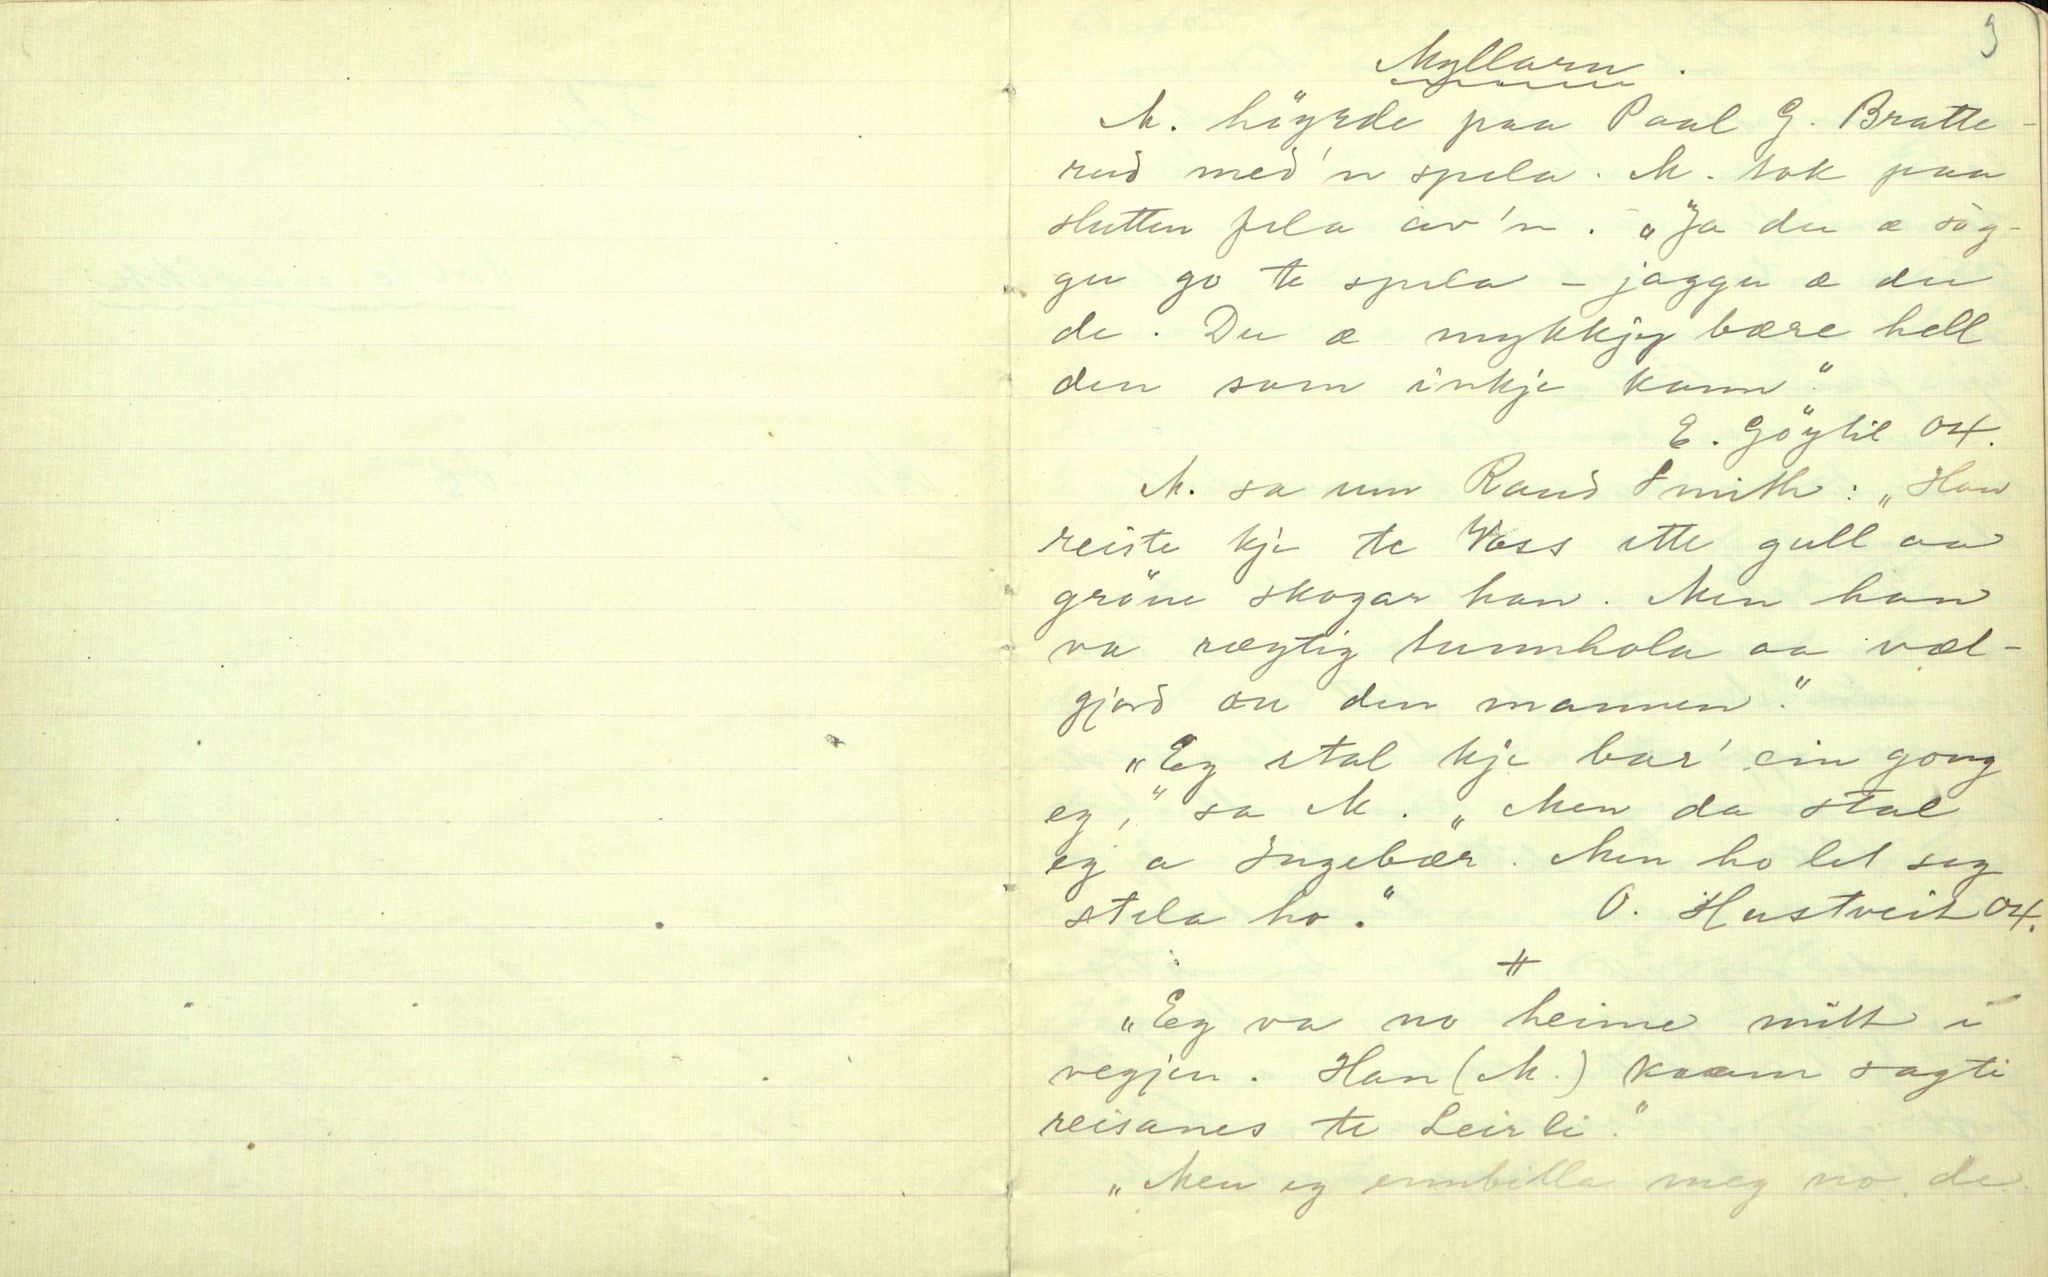 9
Myllarn.
M. höyrde paa Paal G. Bratte-
rud med'n spela. M. tok paa
slutten fela av'n. „Ja du æ søg-
gu go te spela – jaggu æ du
de. Du æ mykkjy bære hell
den som inkje kann."
E. Göytil 04.
M. sa um Raud Smith: „Han
reiste kje te Voss ette gull aa
gröne skogar han. Men han
va rægtig tunnhola aa væl-
gjord au den mannen."
„Eg stal kje bar' ein gong
eg," sa M. „Men da stal
eg a Ingebær. Men ho let seg
stela ho." O. Hustveit 04.
#
„Eg va no heime mitt i
vegjen. Han (M.) kaam sagti
reisanes te Leirli."
„Men eg innbilla meg no de